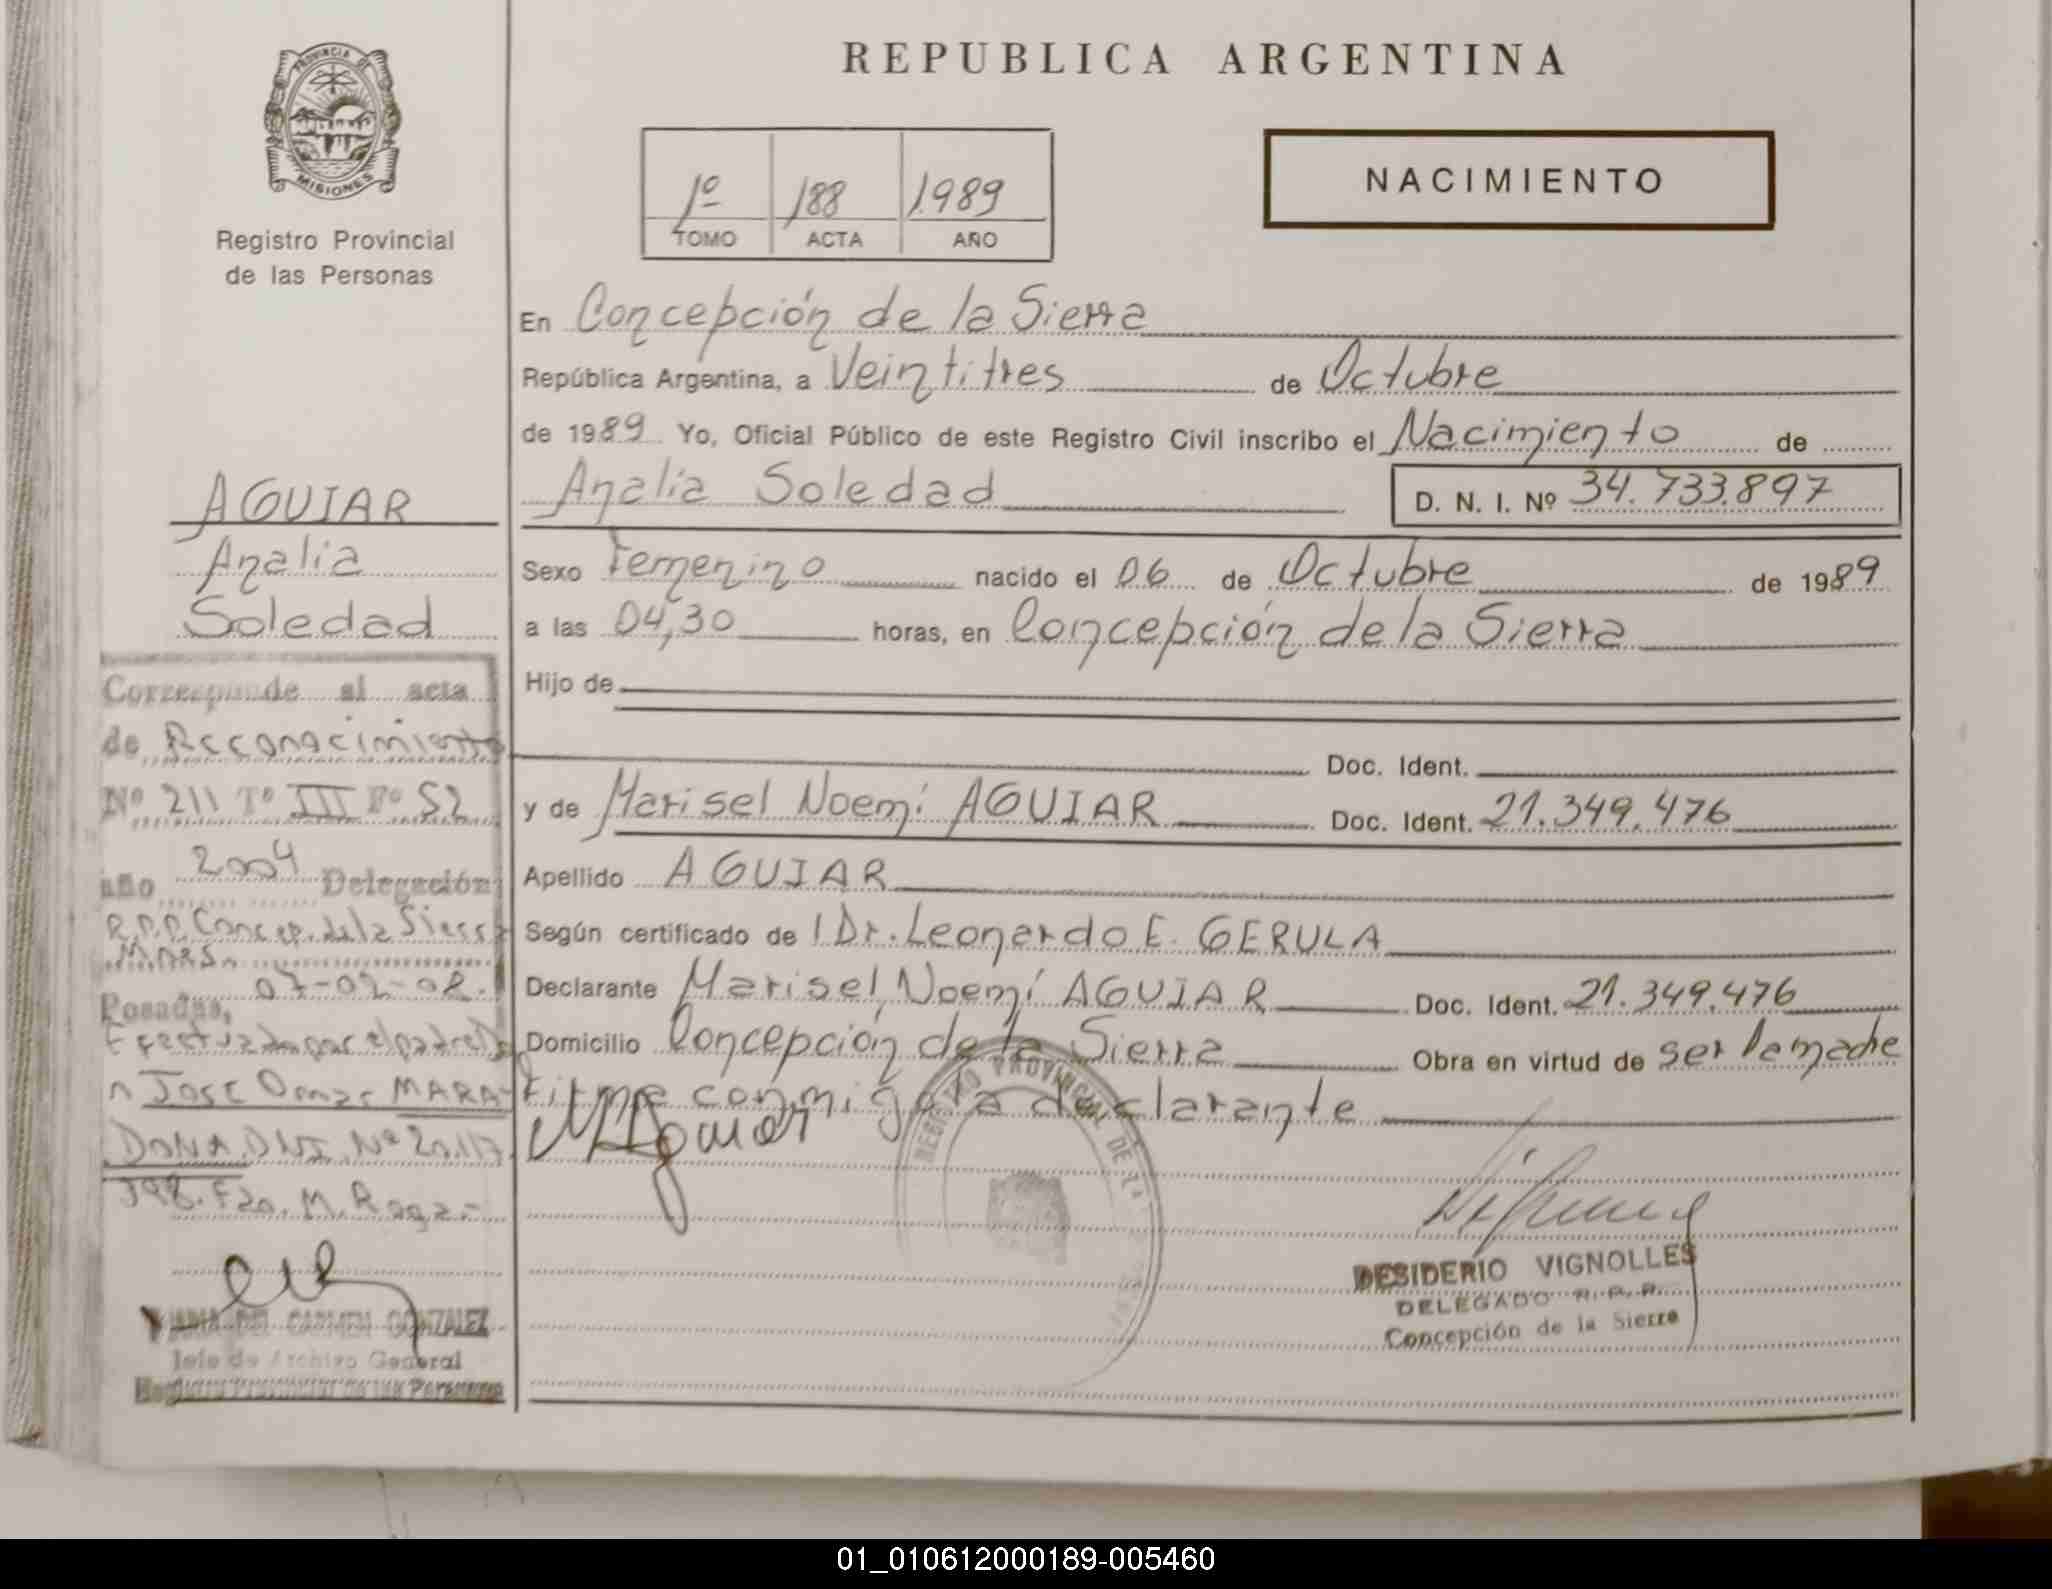 PROVINCIA DE
MISIONES
Registro Provincial
de las Personas
AGUIAR
Analia
Soledad
Corresponde al acta
de Reconocimiento
Nº 211 Tº III Fº 52
año 2004 Delegación
R.P.P. Concep. de la Sierra
Mnes.
Posadas, 07-02-08.
Efectuado por el padre
José Omar MARA-
DONA DNI Nº 20.117.
398. Fdo. M. Raga.-
MARIA DEL CARMEN GONZALEZ
Jefe de Archivo General
Registro Provincial de las Personas
REPUBLICA ARGENTINA
1º 188 1.989
TOMO ACTA AÑO
NACIMIENTO
En Concepción de la Sierra
República Argentina, a Veintitres de Octubre
de 1989 Yo, Oficial Público de este Registro Civil inscribo el Nacimiento de
Analia Soledad D. N. I. Nº 34.733.897
Sexo Femenino nacido el 06 de Octubre de 1989
a las 04,30 horas, en Concepción de la Sierra
Hijo de
Doc. Ident.
y de Marisel Noemí AGUIAR Doc. Ident. 21.349.476
Apellido AGUIAR
Según certificado de l Dr. Leonardo E. GERULA
Declarante Marisel Noemí AGUIAR Doc. Ident. 21.349.476
Domicilio Concepción de la Sierra Obra en virtud de ser la madre
Firma conmigo la declarante
MAguiar
REGISTRO PROVINCIAL DE LA
DESIDERIO VIGNOLLES
DELEGADO R. P. P.
Concepción de la Sierra
01_010612000189-005460